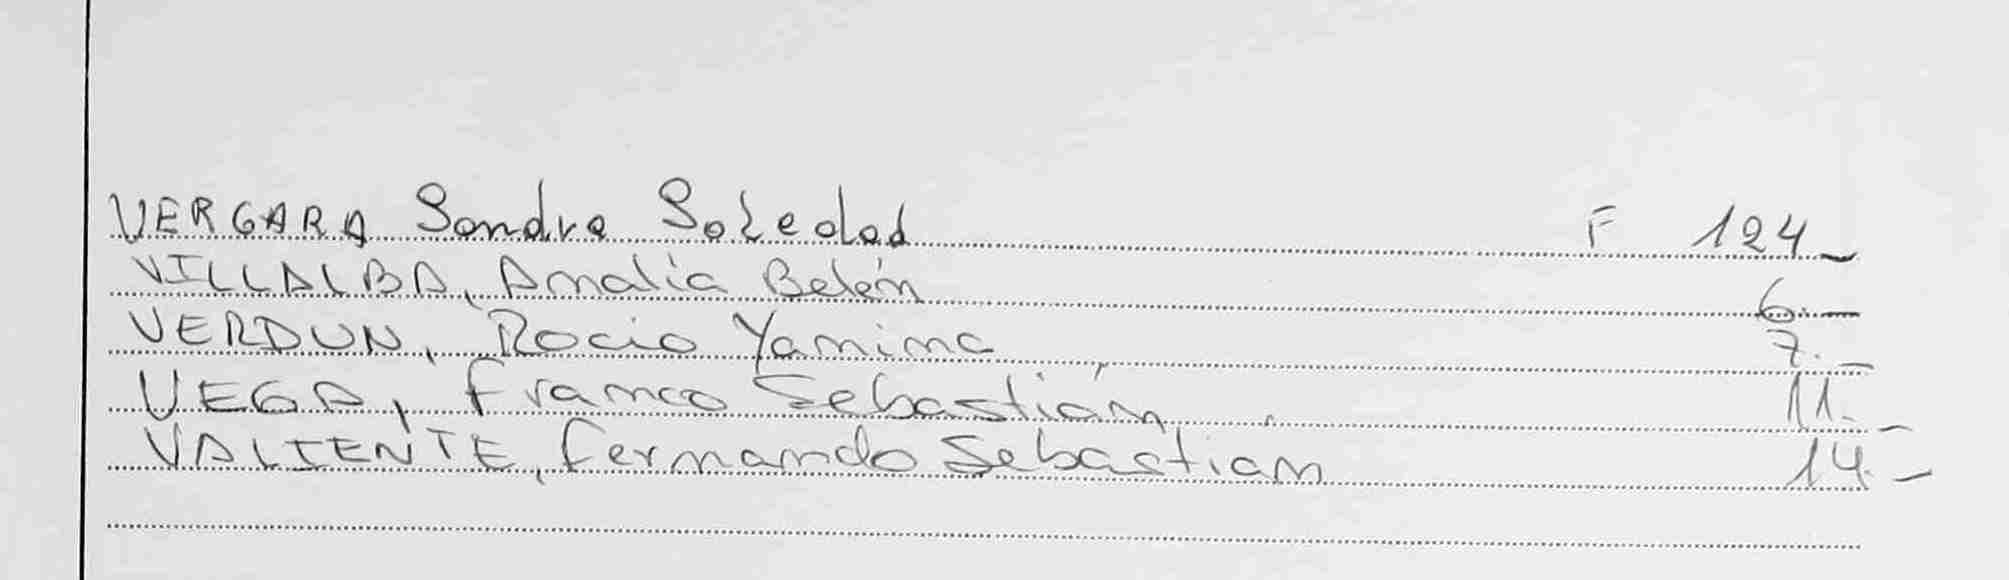 VERGARA Sandra Soledad F 124_
VILLALBA, Amalia Belén 6.—
VERDUN, Rocio Yamina 7._
VEGA, Franco Sebastián 11._
VALIENTE, Fernando Sebastian 14._